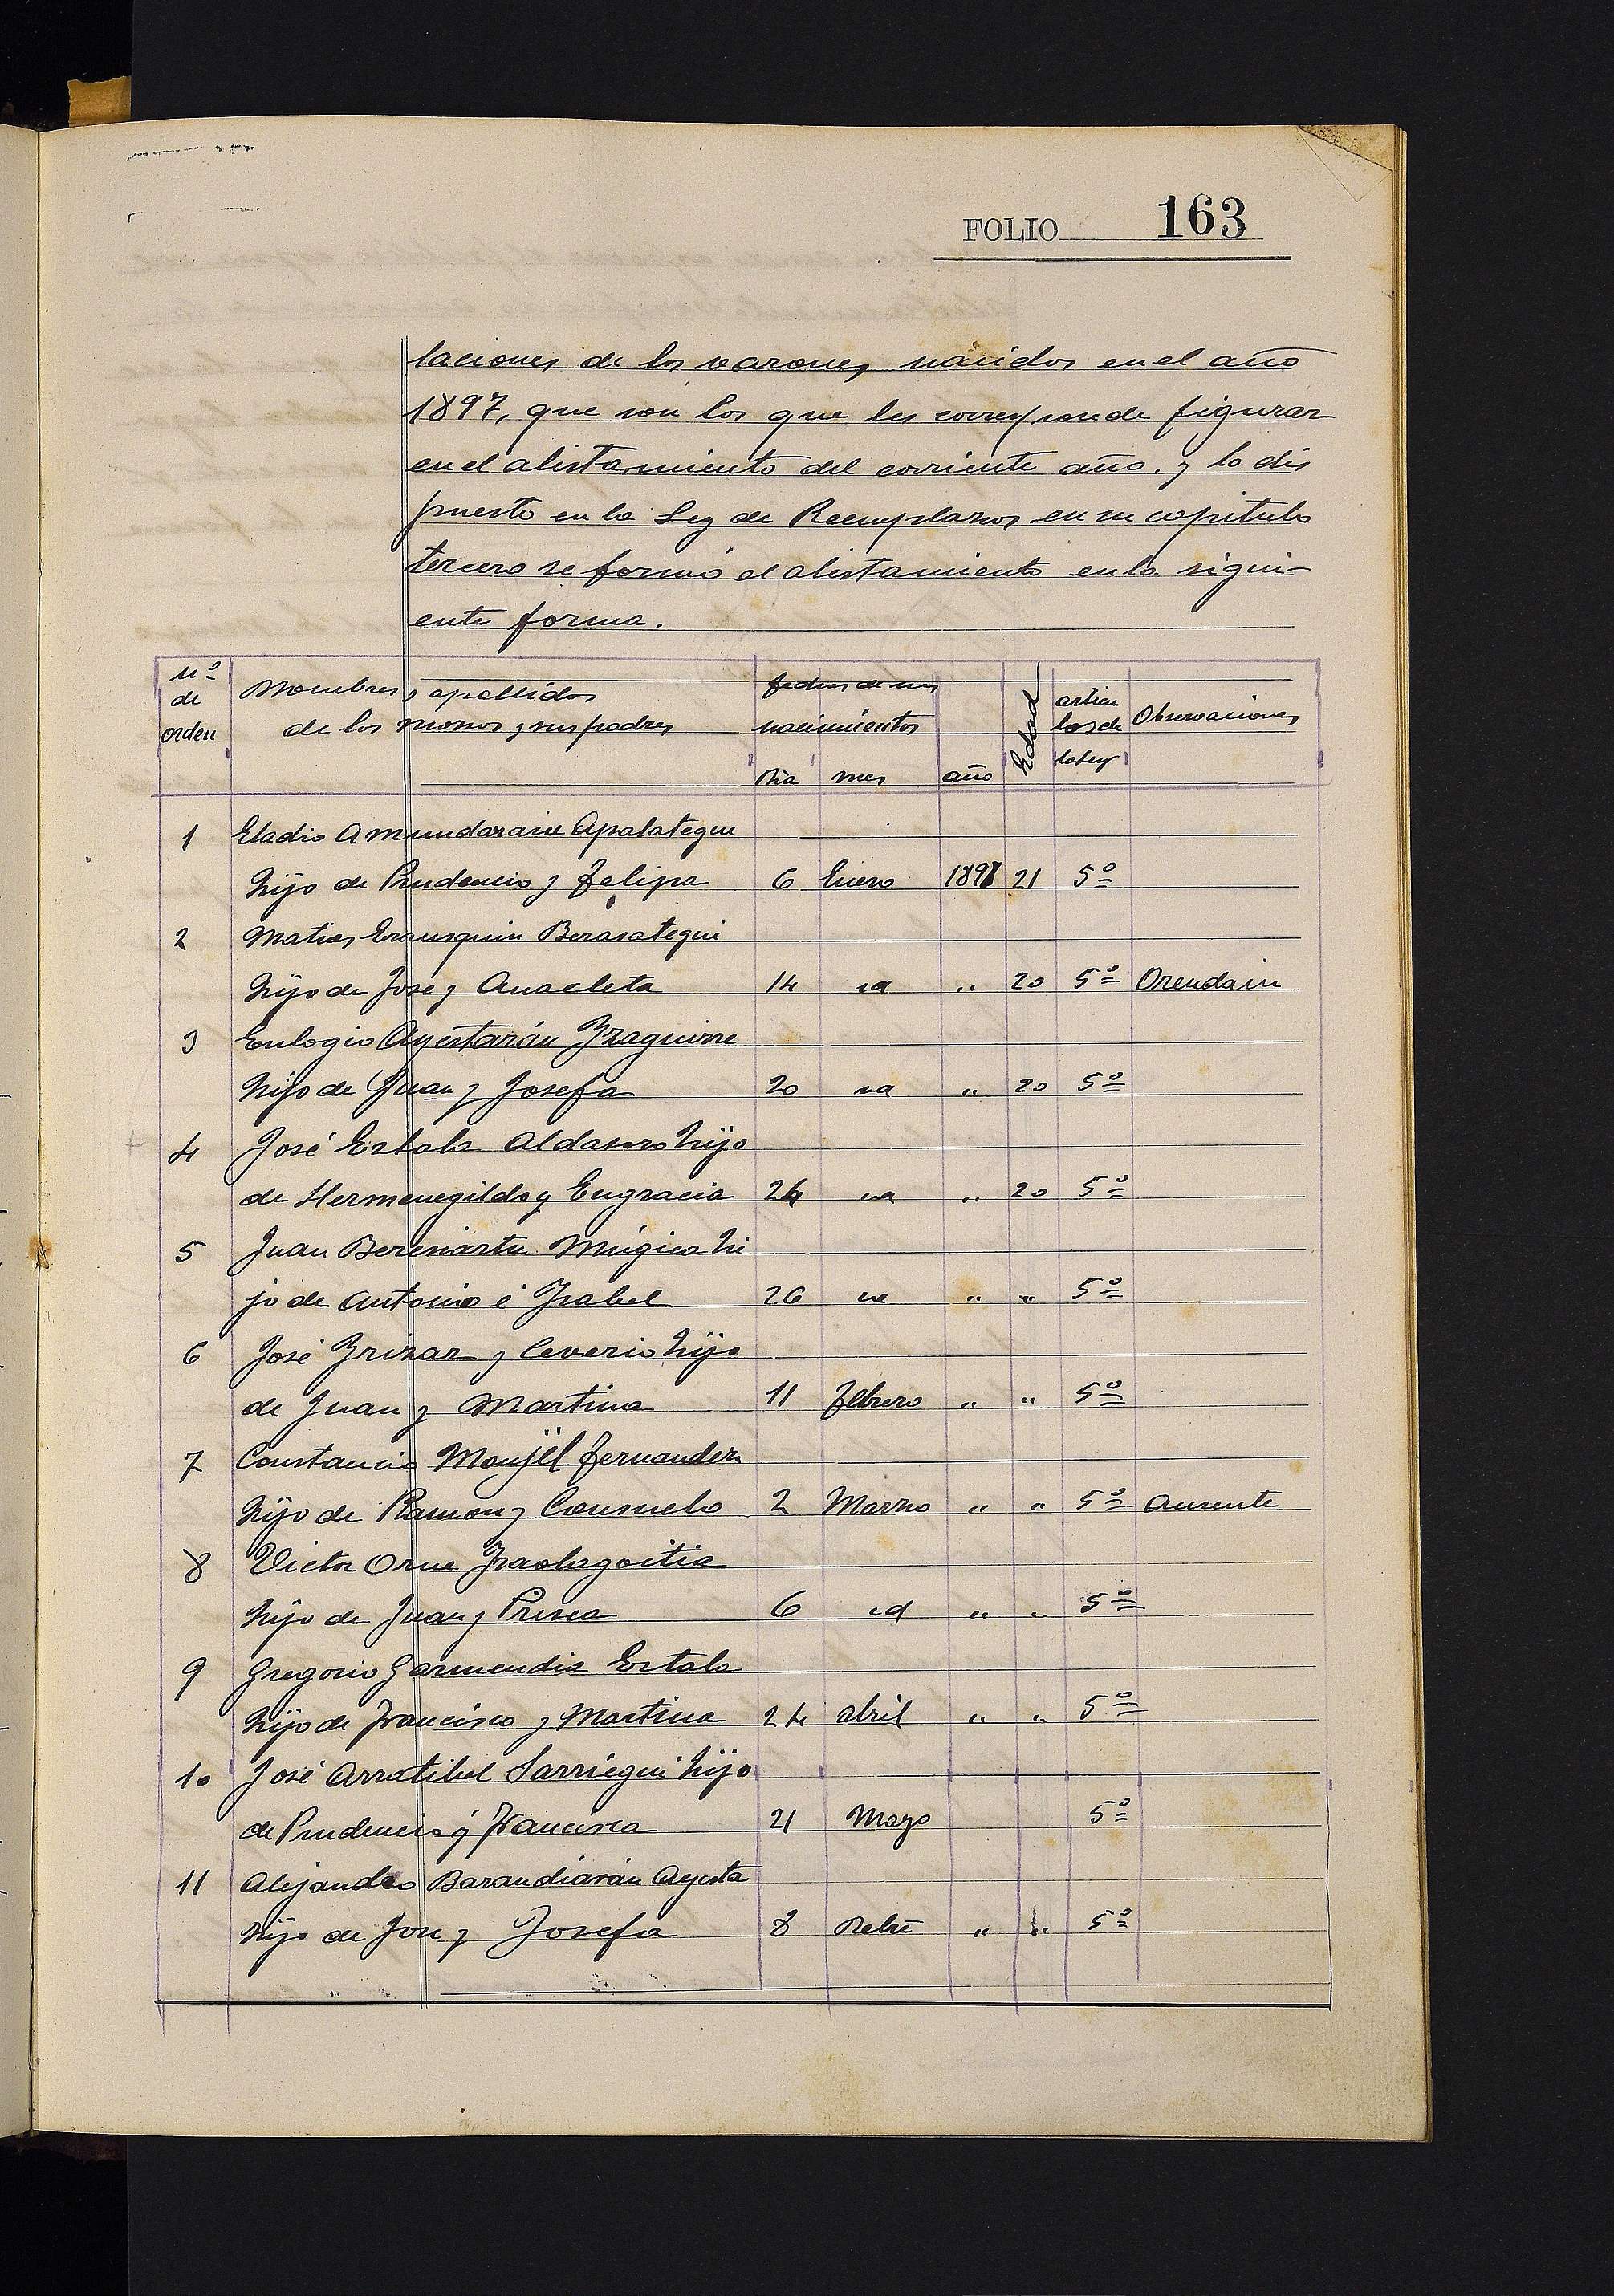 FOLIO 163
laciones de los varones nacidos en el año
1897, que son los que les corresponde figurar
en el alistamiento del corriente año. y lo dis
puesto en la Ley de Reemplazos en su capitulo
tercero se formó el alistamiento en la sigui-
ente forma.
nº de orden | Nombres y apellidos de los mozos y sus padres | fechas de sus nacimientos | Dia | mes | año | Edad | articulos de la ley | Observaciones
1 Eladio Amundarain Apalategui
hijo de Prudencio y Felipa 6 Enero 1897 21 5º
2 Matias Erausquin Berasategui
hijo de José y Anacleta 14 id " 20 5º Orendain
3 Eulogio Ayestarán Yzaguirre
hijo de Juan y Josefa 20 id " 20 5º
4 José Estala Aldasoro hijo
de Hermenegildo y Engracia 24 id " 20 5º
5 Juan Bereciartu Múgica hi
jo de Antonio é Ysabel 26 id " " 5º
6 José Yrizar y Ceverio hijo
de Juan y Martina 11 Febrero " " 5º
7 Constancio Monjil Fernandez
hijo de Ramon y Consuelo 2 Marzo " " 5º Ausente
8 Victor Orue Yraolagoitia
hijo de Juan y Prisca 6 id " " 5º
9 Gregorio Garmendia Estala
hijo de Francisco y Martina 24 Abril " " 5º
10 José Arratibel Sarriegui hijo
de Prudencio y Francisca 21 Mayo 5º
11 Alejandro Barandiarán Ayesta
hijo de José y Josefa 8 " " 5º